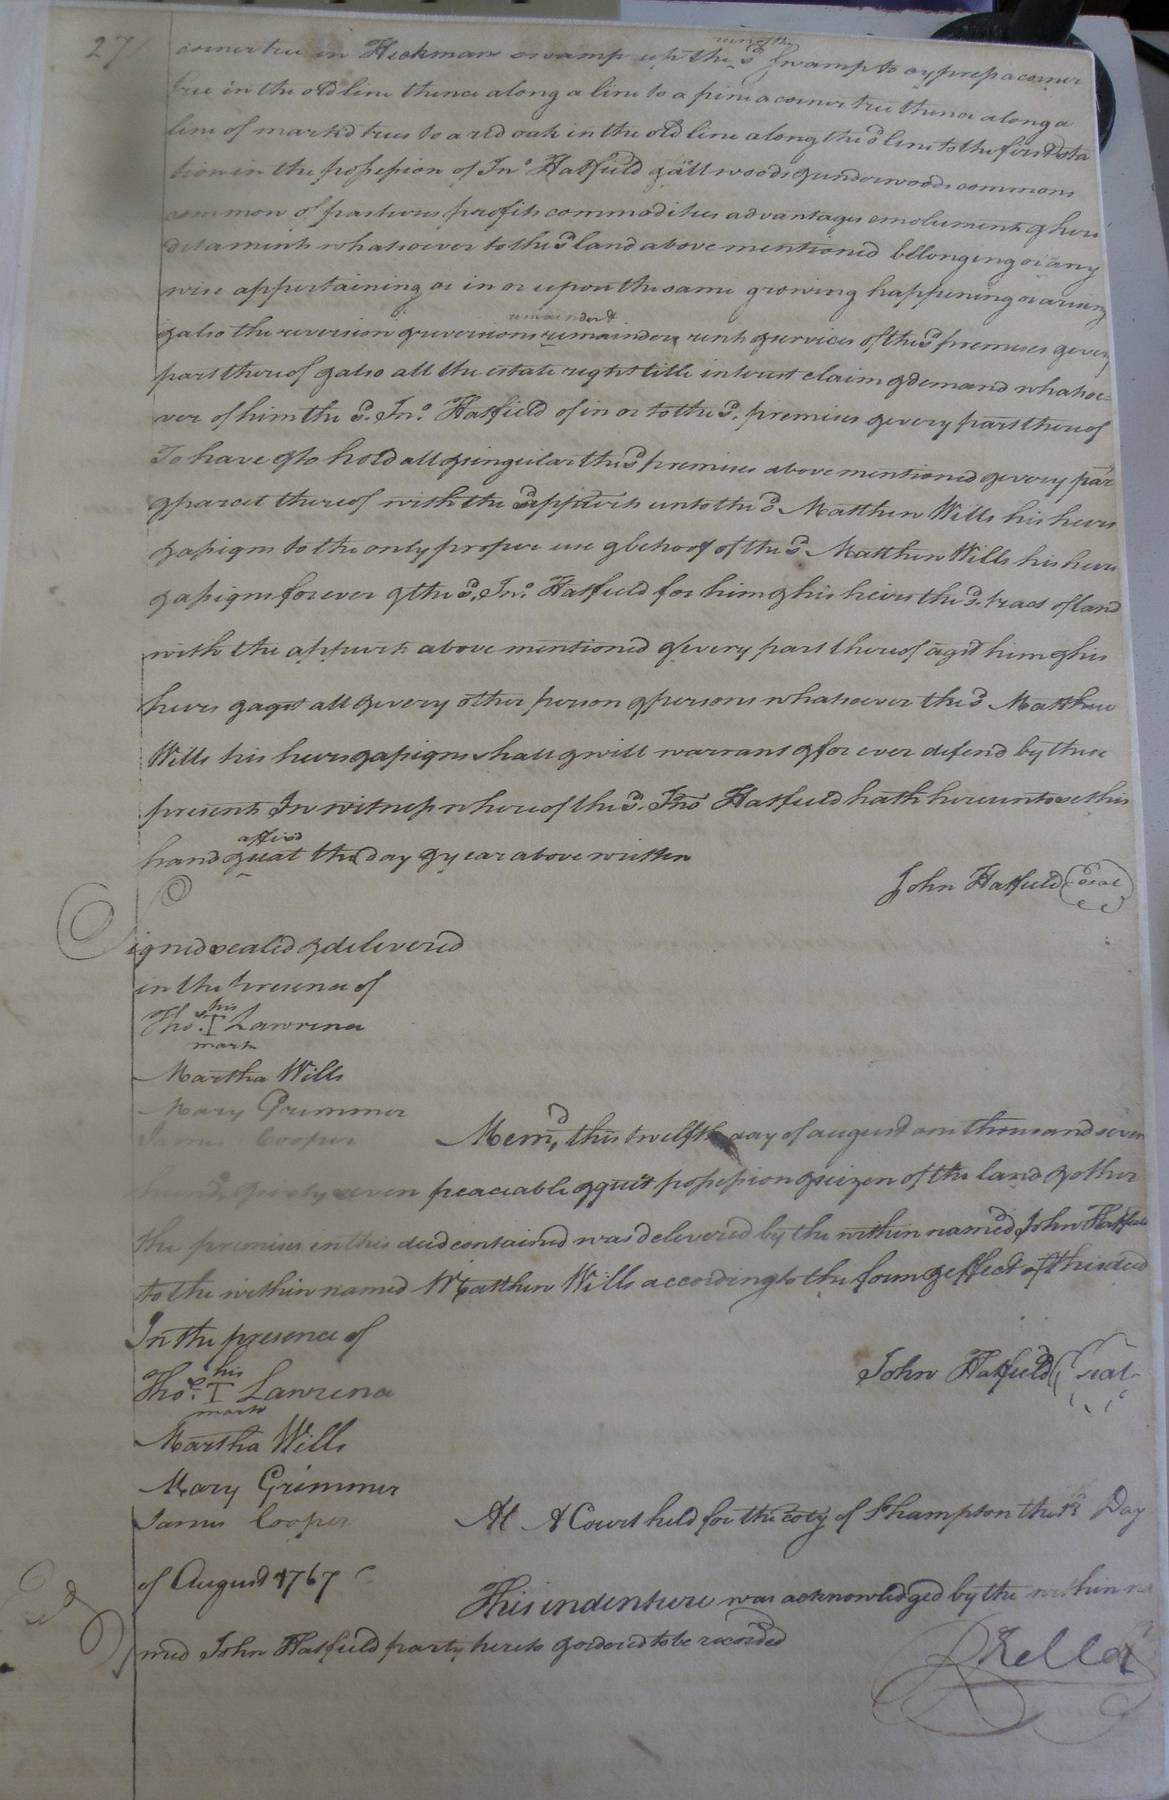 27
corner tree in Hickman swamp up the sd. run of the Swamp to a cypress a corner
tree in the old line thence along a line to a pine a corner tree thence along a
line of markd trees to a red oak in the old line along the sd line to the first sta
tion in the possession of Jno. Hatfield & all woods & underwoods commons
common of pastures profits commodities advantages emoluments & here
ditaments whatsoever to the sd land above mentioned bllonging or in any
wise appertaining or in or upon the same growing happening or arising
remainder &
& also the reversion & reversions remainders rents & services of the sd premises & every
part thereof & also all the estate right title interest claim & demand whatsoe=
ver of him the sd. Jno. Hatfield of in or to the sd. premises & every part thereof
To have & to hold all & singular the sd premises above mentioned & every part
& parcel thereof with the appurts unto the sd Matthew Wills his heirs
& assigns to the only proper use & behoof of the sd. Matthew Wills his heirs
& assigns forever & the sd. Jno. Hatfield for him & his heirs the sd. tract of land
with the appurts above mentioned & every part thereof agst him & his
heirs & agst all & every other person & persons whatsoever the sd Matthew
Wills his heirs & assigns shall & will warrant & for ever defend by these
presents In witness whereof the sd. Jno Hatfield hath hereunto set his
affixd
hand & seal the day & year above written
John Hatfield Seal
Signed sealed & delivered
in the Presence of
Thos. his T mark Lawrence
Martha Wills
Mary Grimmer
James Cooper
Memd, this twelfth day of august one thousand seven
hund. & sixty seven peaceable & quit possession & seizen of the land & other
the premises in this deed contained was delivered by the within named John Hatfield
to the within named Matthew Wills according to the form & effect of this deed
In the presence of
John Hatfield Seal
Thos. his T mark Lawrence
Martha Wills
Mary Grimmer
James Cooper
At A Court held for the coty of S'hampton the 13 Day
of August 1767
This indenture was acknowledged by the within na
med John Hatfield party hereto & ordered to be recorded
Exd
RKello